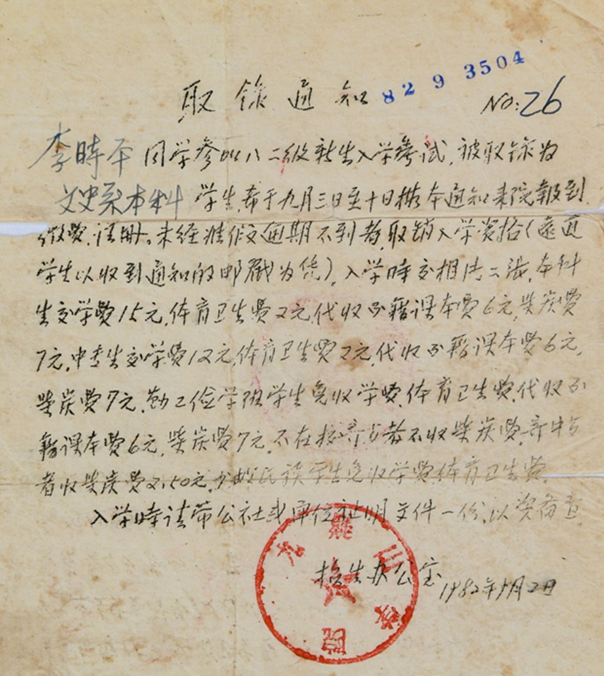 取錄通知
82 9 3504
NO:26
李時平 同学参加八二級新生入学考試,被取錄为
文史系本科 学生,希于九月三日至十日携本通知来院報到
缴费,注册。未經准假逾期不到者取销入学资格(遠道
学生以收到通知的邮戳为凭),入学時交相片二张,本科
生交学費15元,体育卫生費2元代收书籍课本費6元,柴炭費
7元,中专生交学費12元,体育卫生費2元,代收书籍课本費6元,
柴炭費7元,勤工俭学班学生免收学費,体育卫生費,代收书
籍课本費6元,柴炭費7元,不在校 者不收柴炭費,
者收柴炭費2.50元,少数民族学生免收学費体育卫生費
入学時请带公社或单位证明文件一份,以资备查
招生办公室
1982年9月2日
九嶷山学院